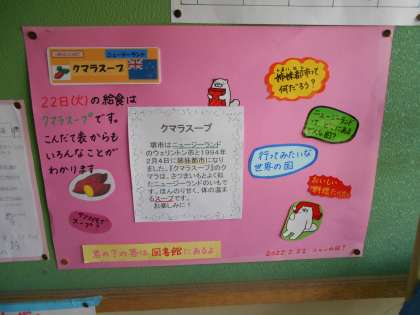 ニュージーランド
クマラスープ
22日(火)の給食は
クマラスープです。
こんだて表からも
いろんなことが
わかります
クマラスープ
堺市はニュージーランド
のウェリントン市と1994年
2月4日に姉妹都市になり
ました。『クマラスープ』のク
マラは、さつまいもとよく似
たニュージーランドのいもで
す。ほんのり甘く、体の温ま
るスープです。
お楽しみに!
姉妹都市って
何だろう?
ニュージーランド
って
どんな国?
行ってみたいな
世界の国
おいしい
野菜
スープ
答は図書館にあるよ
2022.2.22